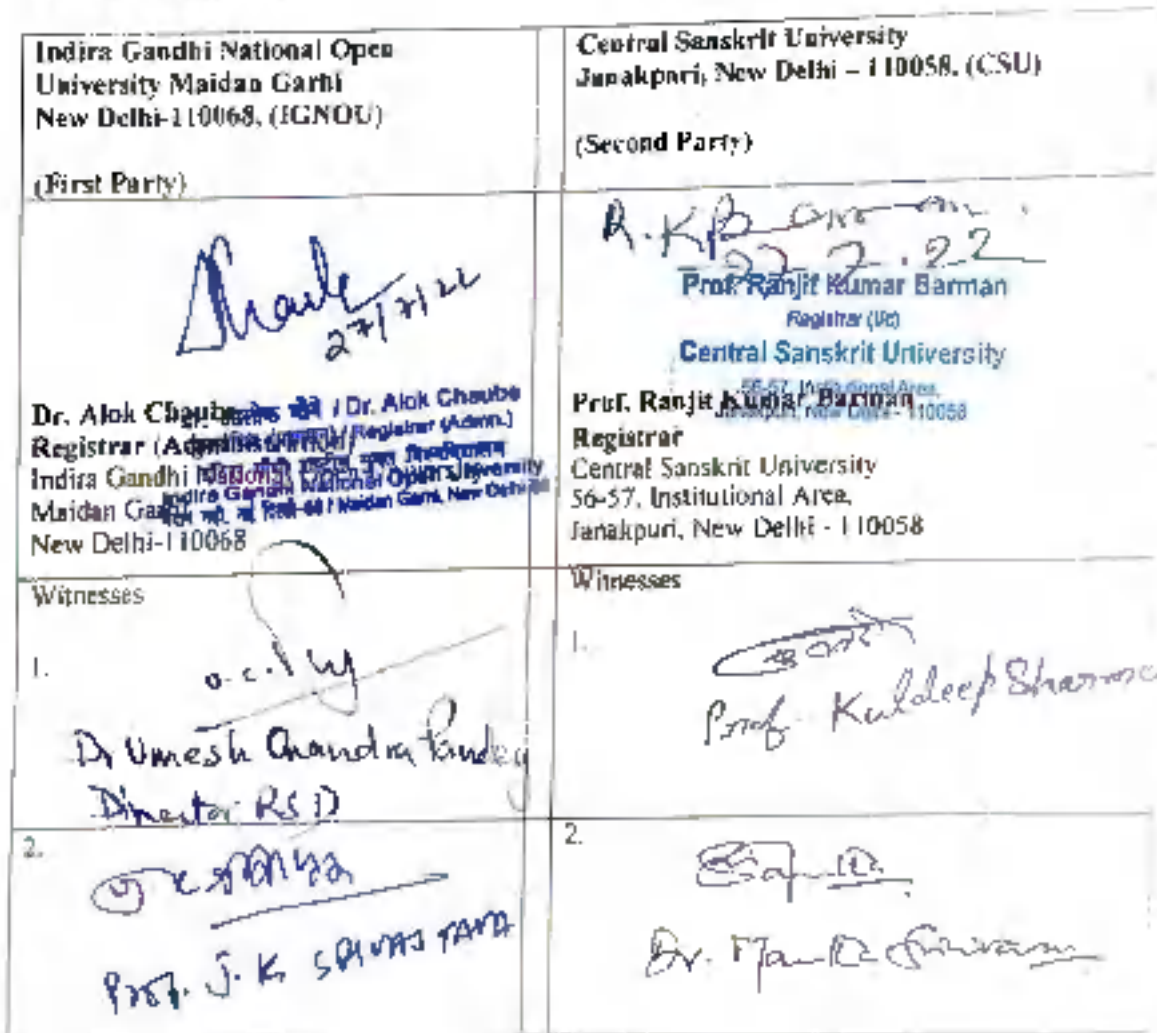 Indira Gandhi National Open
University Maidan Garhi
New Delhi-110068. (IGNOU)
(First Party)
Central Sanskrit University
Janakpuri, New Delhi – 110058. (CSU)
(Second Party)
27/7/22
Dr. Alok Chaube
/ Dr. Alok Chaube
Registrar (Administration)
/ Registrar (Admn.)
Indira Gandhi National Open University
Indira Gandhi National Open University
Maidan Garhi
/ Maidan Garhi, New Delhi-68
New Delhi-110068
R. K. Barman
22.7.22
Prof. Ranjit Kumar Barman
Registrar (I/c)
Central Sanskrit University
56-57, Institutional Area,
Janakpuri, New Delhi - 110058
Prof. Ranjit Kumar Barman
Registrar
Central Sanskrit University
56-57, Institutional Area,
Janakpuri, New Delhi - 110058
Witnesses
1.
Dr Umesh Chandra Pandey
Director RSD
Witnesses
1.
Prof. Kuldeep Sharma
2.
Prof. J. K. SRIVASTAVA
2.
Dr.